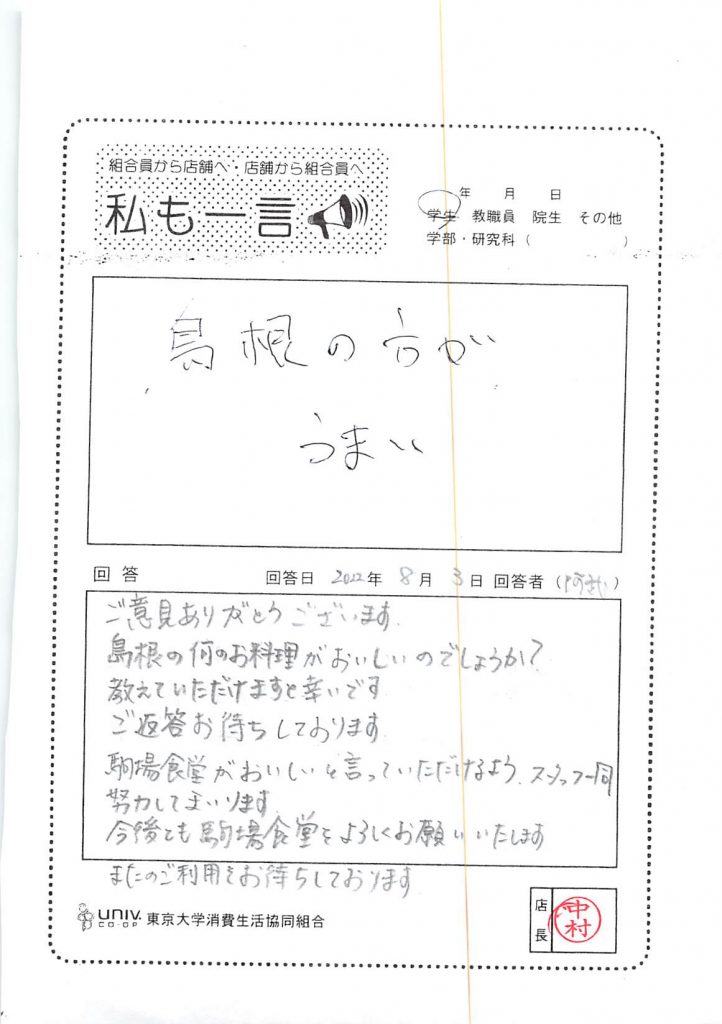 組合員から店舗へ・店舗から組合員へ
私も一言
年 月 日
学生 教職員 院生 その他
学部・研究科 ( )
島根の方が
うまい
回答 回答日 2022年 8月 3日 回答者 ( )
ご意見ありがとうございます
島根の何のお料理がおいしいのでしょうか?
教えていただけますと幸いです
ご返答お待ちしております
駒場食堂がおいしいと言っていただけるよう、スタッフ一同
努力してまいります
今後とも駒場食堂をよろしくお願いいたします
またのご利用をお待ちしております
UNIV.
CO-OP
東京大学消費生活協同組合
店長
中村